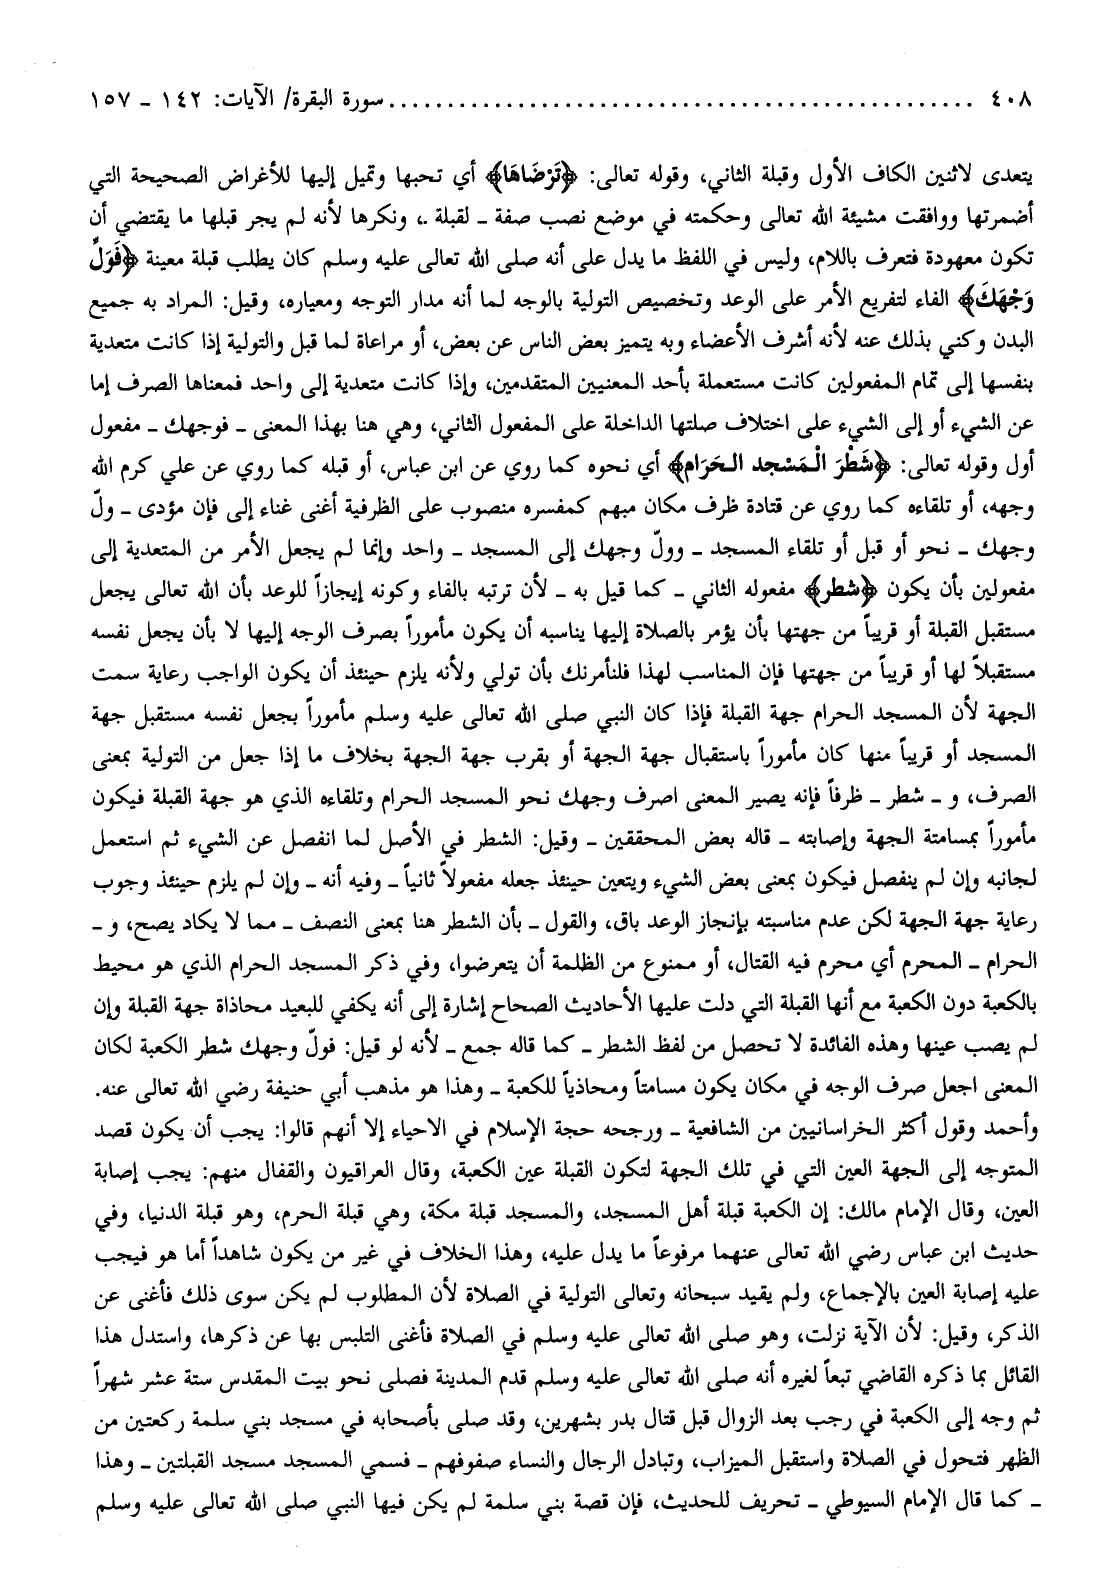 ٤٠٨ .................................................. سورة البقرة/ الآيات: ١٤٢ ـ ١٥٧
يتعدى لاثنين الكاف الأول وقبلة الثاني، وقوله تعالى: ﴿تَرْضَاهَا﴾ أي تحبها وتميل إليها للأغراض الصحيحة التي
أضمرتها ووافقت مشيئة الله تعالى وحكمته في موضع نصب صفة ـ لقبلة ـ، ونكرها لأنه لم يجر قبلها ما يقتضي أن
تكون معهودة فتعرف باللام، وليس في اللفظ ما يدل على أنه صلى الله تعالى عليه وسلم كان يطلب قبلة معينة ﴿فَوَلِّ
وَجْهَكَ﴾ الفاء لتفريع الأمر على الوعد وتخصيص التولية بالوجه لما أنه مدار التوجه ومعياره، وقيل: المراد به جميع
البدن وكني بذلك عنه لأنه أشرف الأعضاء وبه يتميز بعض الناس عن بعض، أو مراعاة لما قبل والتولية إذا كانت متعدية
بنفسها إلى تمام المفعولين كانت مستعملة بأحد المعنيين المتقدمين، وإذا كانت متعدية إلى واحد فمعناها الصرف إما
عن الشيء أو إلى الشيء على اختلاف صلتها الداخلة على المفعول الثاني، وهي هنا بهذا المعنى ـ فوجهك ـ مفعول
أول وقوله تعالى: ﴿شَطْرَ الْمَسْجد الحَرَام﴾ أي نحوه كما روي عن ابن عباس، أو قبله كما روي عن علي كرم الله
وجهه، أو تلقاءه كما روي عن قتادة ظرف مكان مبهم كمفسره منصوب على الظرفية أغنى غناء إلى فإن مؤدى ـ ولّ
وجهك ـ نحو أو قبل أو تلقاء المسجد ـ وولّ وجهك إلى المسجد ـ واحد وإنما لم يجعل الأمر من المتعدية إلى
مفعولين بأن يكون ﴿شطر﴾ مفعوله الثاني ـ كما قيل به ـ لأن ترتبه بالفاء وكونه إيجازاً للوعد بأن الله تعالى يجعل
مستقبل القبلة أو قريباً من جهتها بأن يؤمر بالصلاة إليها يناسبه أن يكون مأموراً بصرف الوجه إليها لا بأن يجعل نفسه
مستقبلاً لها أو قريباً من جهتها فإن المناسب لهذا فلنأمرنك بأن تولي ولأنه يلزم حينئذ أن يكون الواجب رعاية سمت
الجهة لأن المسجد الحرام جهة القبلة فإذا كان النبي صلى الله تعالى عليه وسلم مأموراً بجعل نفسه مستقبل جهة
المسجد أو قريباً منها كان مأموراً باستقبال جهة الجهة أو بقرب جهة الجهة بخلاف ما إذا جعل من التولية بمعنى
الصرف، و ـ شطر ـ ظرفاً فإنه يصير المعنى اصرف وجهك نحو المسجد الحرام وتلقاءه الذي هو جهة القبلة فيكون
مأموراً بمسامتة الجهة وإصابته ـ قاله بعض المحققين ـ وقيل: الشطر في الأصل لما انفصل عن الشيء ثم استعمل
لجانبه وإن لم ينفصل فيكون بمعنى بعض الشيء ويتعين حينئذ جعله مفعولاً ثانياً ـ وفيه أنه ـ وإن لم يلزم حينئذ وجوب
رعاية جهة الجهة لكن عدم مناسبته بإنجاز الوعد باق، والقول ـ بأن الشطر هنا بمعنى النصف ـ مما لا يكاد يصح، و ـ
الحرام ـ المحرم أي محرم فيه القتال، أو ممنوع من الظلمة أن يتعرضوا، وفي ذكر المسجد الحرام الذي هو محيط
بالكعبة دون الكعبة مع أنها القبلة التي دلت عليها الأحاديث الصحاح إشارة إلى أنه يكفي للبعيد محاذاة جهة القبلة وإن
لم يصب عينها وهذه الفائدة لا تحصل من لفظ الشطر ـ كما قاله جمع ـ لأنه لو قيل: فولّ وجهك شطر الكعبة لكان
المعنى اجعل صرف الوجه في مكان يكون مسامتاً ومحاذياً للكعبة ـ وهذا هو مذهب أبي حنيفة رضي الله تعالى عنه.
وأحمد وقول أكثر الخراسانيين من الشافعية ـ ورجحه حجة الإسلام في الاحياء إلا أنهم قالوا: يجب أن يكون قصد
المتوجه إلى الجهة العين التي في تلك الجهة لتكون القبلة عين الكعبة، وقال العراقيون والقفال منهم: يجب إصابة
العين، وقال الإمام مالك: إن الكعبة قبلة أهل المسجد، والمسجد قبلة مكة، وهي قبلة الحرم، وهو قبلة الدنيا، وفي
حديث ابن عباس رضي الله تعالى عنهما مرفوعاً ما يدل عليه، وهذا الخلاف في غير من يكون شاهداً أما هو فيجب
عليه إصابة العين بالإجماع، ولم يقيد سبحانه وتعالى التولية في الصلاة لأن المطلوب لم يكن سوى ذلك فأغنى عن
الذكر، وقيل: لأن الآية نزلت، وهو صلى الله تعالى عليه وسلم في الصلاة فأغنى التلبس بها عن ذكرها، واستدل هذا
القائل بما ذكره القاضي تبعاً لغيره أنه صلى الله تعالى عليه وسلم قدم المدينة فصلى نحو بيت المقدس ستة عشر شهراً
ثم وجه إلى الكعبة في رجب بعد الزوال قبل قتال بدر بشهرين، وقد صلى بأصحابه في مسجد بني سلمة ركعتين من
الظهر فتحول في الصلاة واستقبل الميزاب، وتبادل الرجال والنساء صفوفهم ـ فسمي المسجد مسجد القبلتين ـ وهذا
ـ كما قال الإمام السيوطي ـ تحريف للحديث، فإن قصة بني سلمة لم يكن فيها النبي صلى الله تعالى عليه وسلم